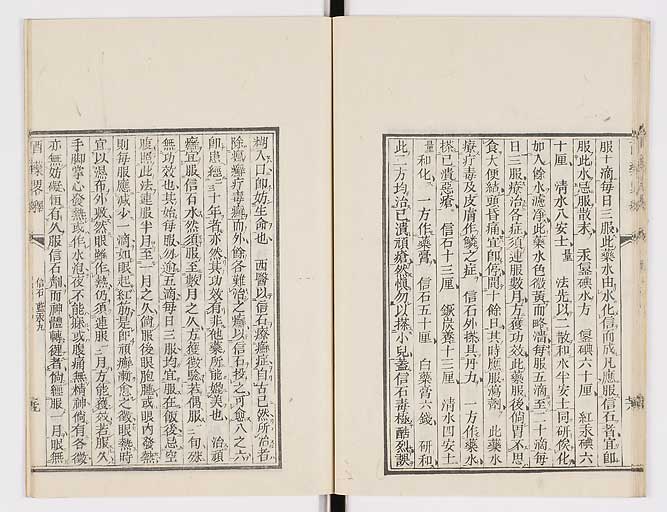 服十滴每日三服此藥水由水化信而成凡應服信石者宜卽
服此水忌服散末 汞𥔵碘水方 信𥔵碘六十厘 紅汞碘六
十厘 清水八安士量 法先以二散和水半安士同研俟化
如入餘水濾淨此藥水色微黃而略濇每服五滴至二十滴每
日三服療治各症須連服數月方獲功效此藥服後倘胃不思
食大便結頭昏痛宜卽停閒十餘日其時應服瀉劑 此藥水
療疔毒及皮膚作鱗之症 信石外搽具丹力 一方作藥水
搽已潰惡瘡 信石十三厘 鏀炭養十三厘 清水四安士
量和化 一方作藥膏 信石五十厘 白藥膏六錢 研和
此二方均治已潰頑瘡然愼勿以搽小兒蓋信石毒極酷烈誤
糊入口卽妨生命也 西醫以信石療癬症自古已然所治者
除癘癬疔毒癬而外餘各難治之癬以信石投之可愈八之六
卽患經三十年者亦然其功效有非他藥所能媲美也 治頑
癬宜服信石水然須服至數月之久方獲微驗若偶服一旬殊
無功效也其始每服勿逾五滴每日三服均宜服在飯後忌空
腹照此法連服半月至一月之久倘服後眼胞腫或眼內發熱
則每服應減少一滴如眼起紅筋是卽頑癬漸愈之徵眼熱時
宜以濕布外敷然眼雖作熱仍須連服二月方能獲效若服久
手脚掌心發熱或作水泡夜不能寐或腹痛無精神倘有各徵
亦無妨礙恒有久服信石劑而神體轉健者倘經服一月服無
西藥畧釋
信石 藍汞九